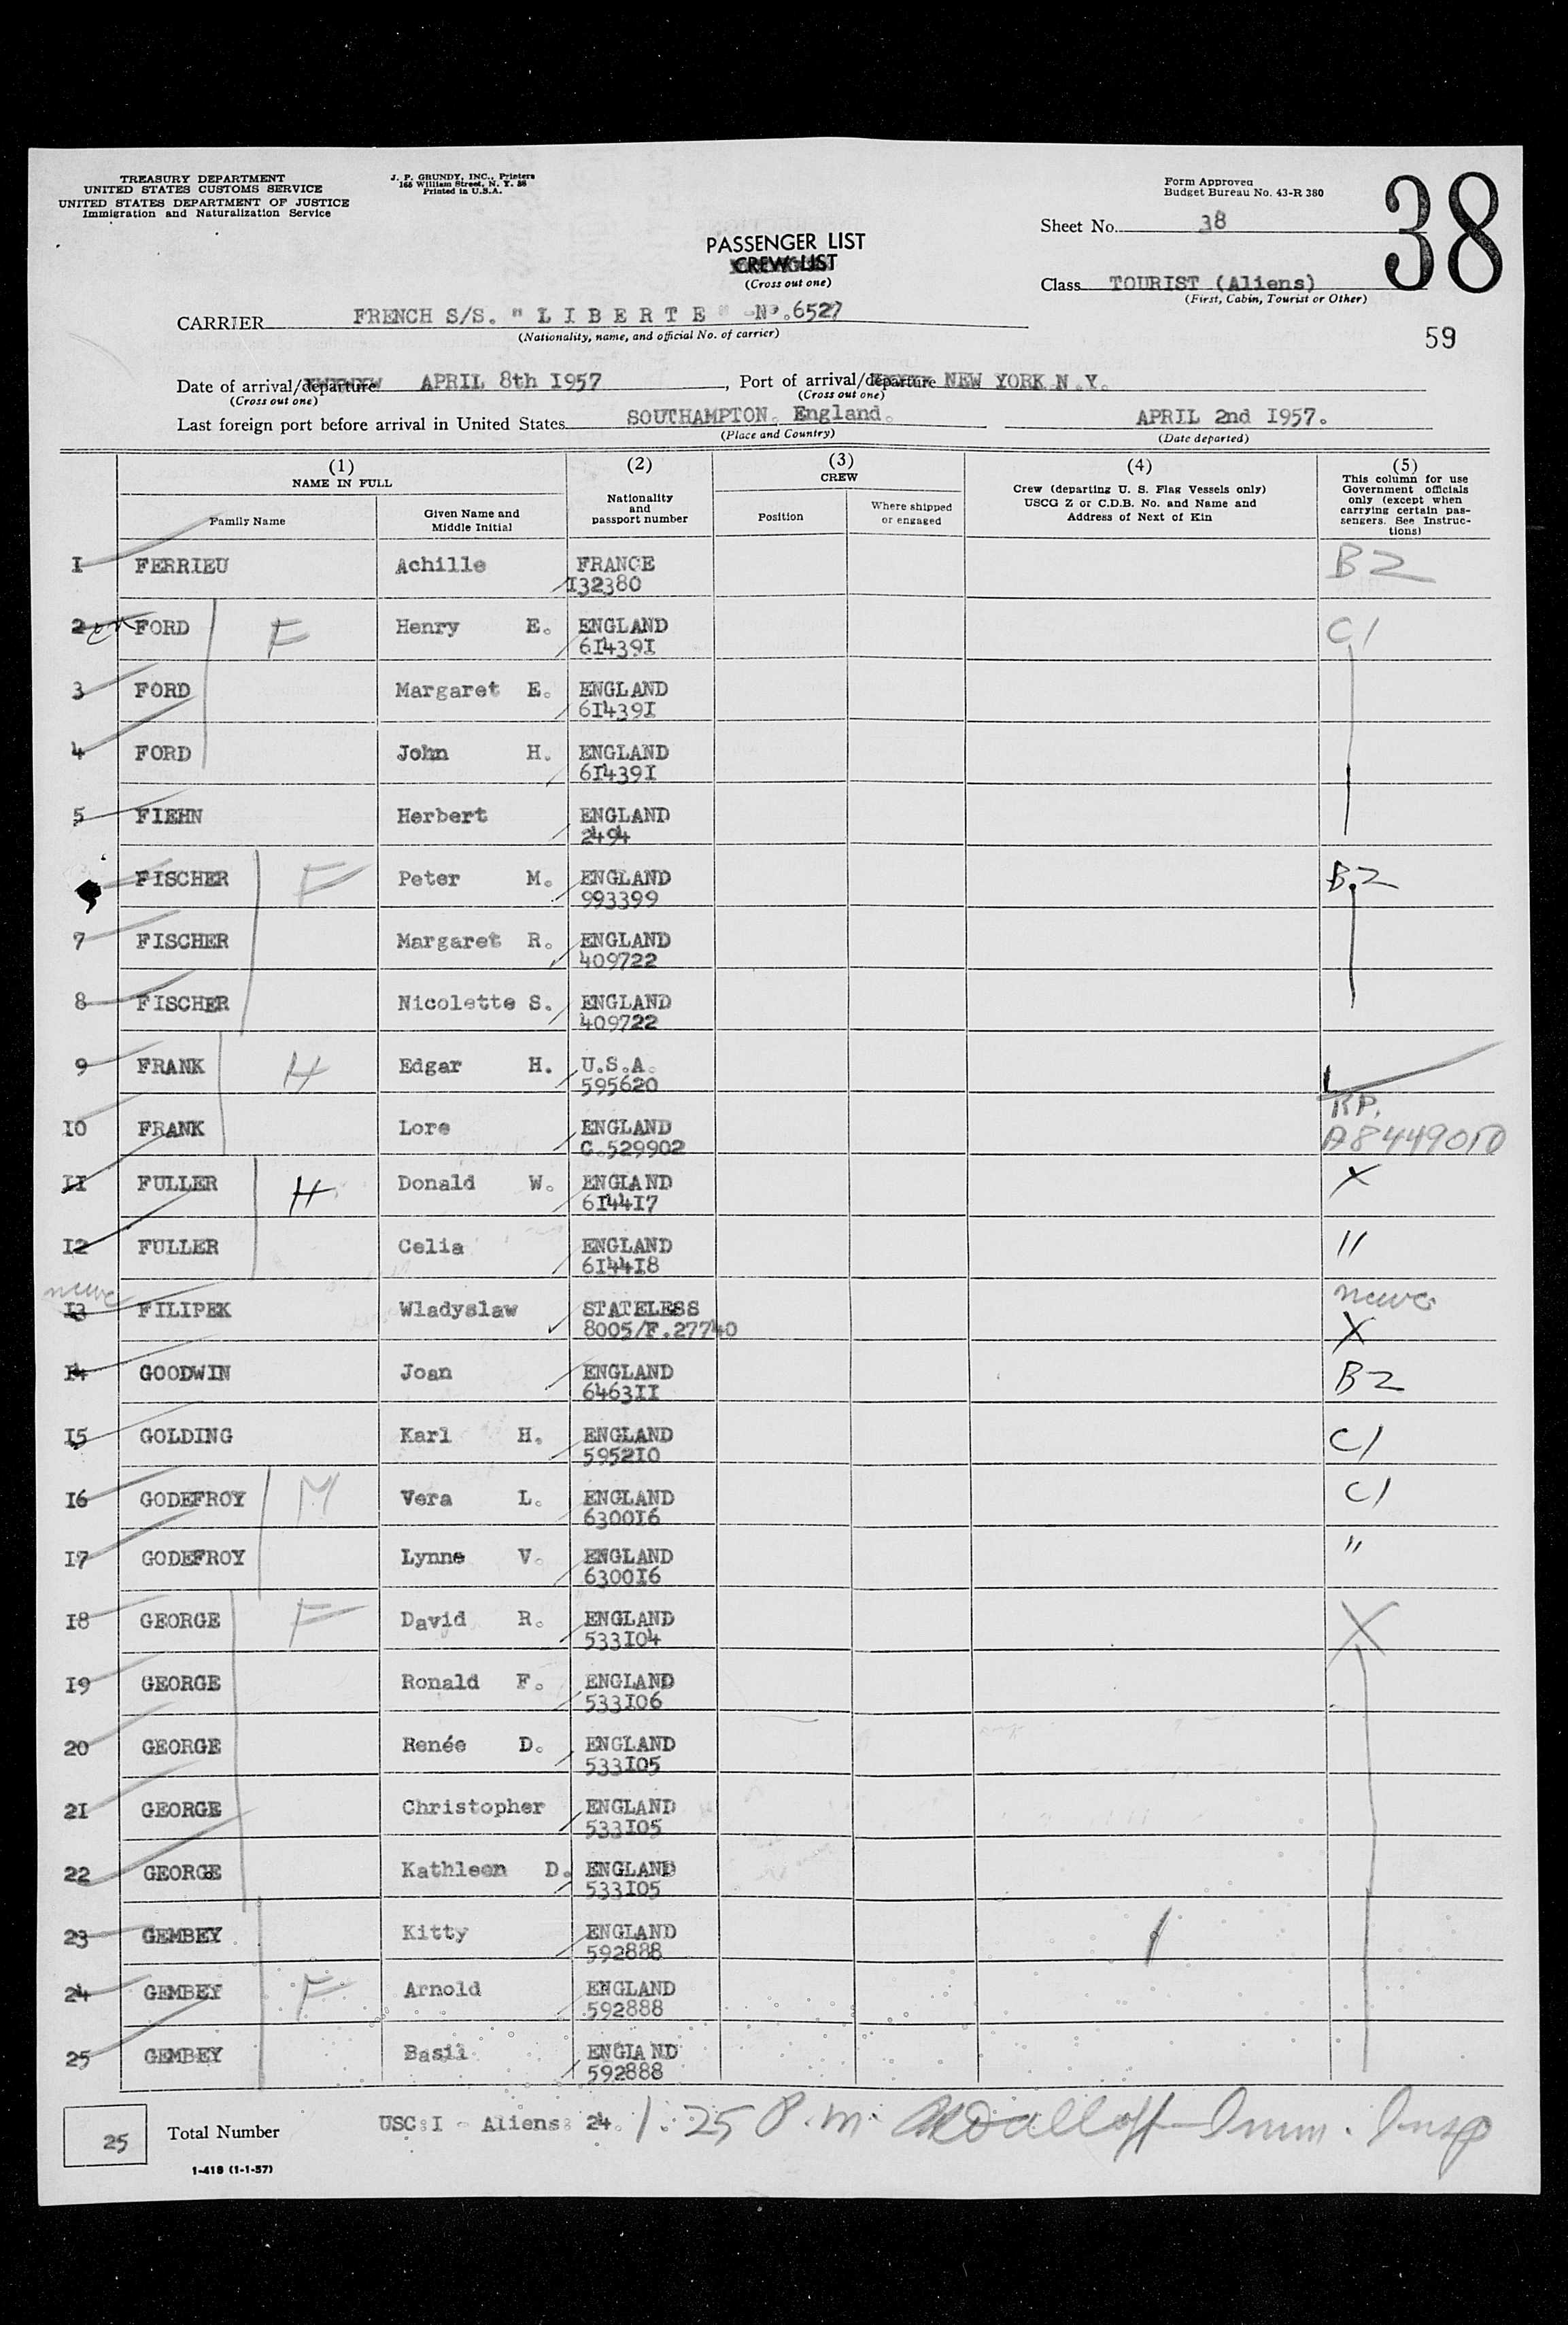 TREASURY DEPARTMENT
UNITED STATES CUSTOMS SERVICE
UNITED STATES DEPARTMENT OF JUSTICE
Immigration and Naturalization Service
J. P. GRUNDY, INC., Printers
166 William Street, N. Y. 38
Printed in U.S.A.
Form Approved
Budget Bureau No. 43-R 380
38
Sheet No. 38
PASSENGER LIST
CREW LIST
(Cross out one)
Class TOURIST (Aliens)
(First, Cabin, Tourist or Other)
CARRIER FRENCH S/S. "L I B E R T E" -N°.6527
(Nationality, name, and official No. of carrier)
59
Date of arrival/departure APRIL 8th I957, Port of arrival/departure NEW YORK N.Y.
(Cross out one) (Cross out one)
Last foreign port before arrival in United States SOUTHAMPTON. England. APRIL 2nd I957.
(Place and Country) (Date departed)
(1) (2) (3) (4) (5)
NAME IN FULL
Family Name
Given Name and Middle Initial
Nationality and passport number
CREW
Position
Where shipped or engaged
Crew (departing U. S. Flag Vessels only)
USCG Z or C.D.B. No. and Name and
Address of Next of Kin
This column for use
Government officials
only (except when
carrying certain pas-
sengers. See Instruc-
tions)
I FERRIEU Achille FRANCE B2
I32380
2 FORD F Henry E. ENGLAND C1
6I439I
3 FORD Margaret E. ENGLAND
6I439I
4 FORD John H. ENGLAND
6I439I
5 FIEHN Herbert ENGLAND
2494
FISCHER F Peter M. ENGLAND B2
993399
7 FISCHER Margaret R. ENGLAND
409722
8 FISCHER Nicolette S. ENGLAND
409722
9 FRANK H Edgar H. U.S.A.
595620
10 FRANK Lore ENGLAND RP.
C.529902 A8449050
II FULLER H Donald W. ENGLAND X
6I44I7
I2 FULLER Celia ENGLAND "
6I44I8
I3 FILIPEK Wladyslaw STATELESS
8005/F.27740 X
I4 GOODWIN Joan ENGLAND B2
6463II
I5 GOLDING Karl H. ENGLAND C1
5952I0
I6 GODEFROY M Vera L. ENGLAND C1
6300I6
I7 GODEFROY Lynne V. ENGLAND "
6300I6
I8 GEORGE F David R. ENGLAND X
533I04
I9 GEORGE Ronald F. ENGLAND
533I06
20 GEORGE Renée D. ENGLAND
533I05
2I GEORGE Christopher ENGLAND
533I05
22 GEORGE Kathleen D. ENGLAND
533I05
23 GEMBEY Kitty ENGLAND
592888
24 GEMBEY F Arnold ENGLAND
592888
25 GEMBEY Basil ENGLAND
592888
25 Total Number USC:I - Aliens: 24. 1:25 P.m. Imm. Insp
1-418 (1-1-57)